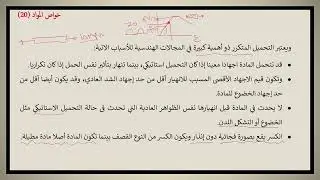 خواص المواد (20)
ويعتبر التحميل المتكرر ذو أهمية كبيرة في المجالات الهندسية للأسباب الاتية:
قد تتحمل المادة اجهادا معينا إذا كان التحميل استاتيكي، بينما تنهار بتأثير نفس الحمل إذا كان تكراريا.
وتكون قيم الاجهاد الأقصى المسبب للانهيار أقل من حد إجهاد الشد العادي، وقد يكون أيضا أقل من
حد إجهاد الخضوع للمادة.
لا يحدث في المادة قبل انهيارها نفس الظواهر العادية التي تحدث في حالة التحميل الاستاتيكي مثل
الخضوع أو التشكل اللدن.
الكسر يقع بصورة فجائية دون إنذار ويكون الكسر من النوع القصف بينما تكون المادة أصلا مادة مطيلة.